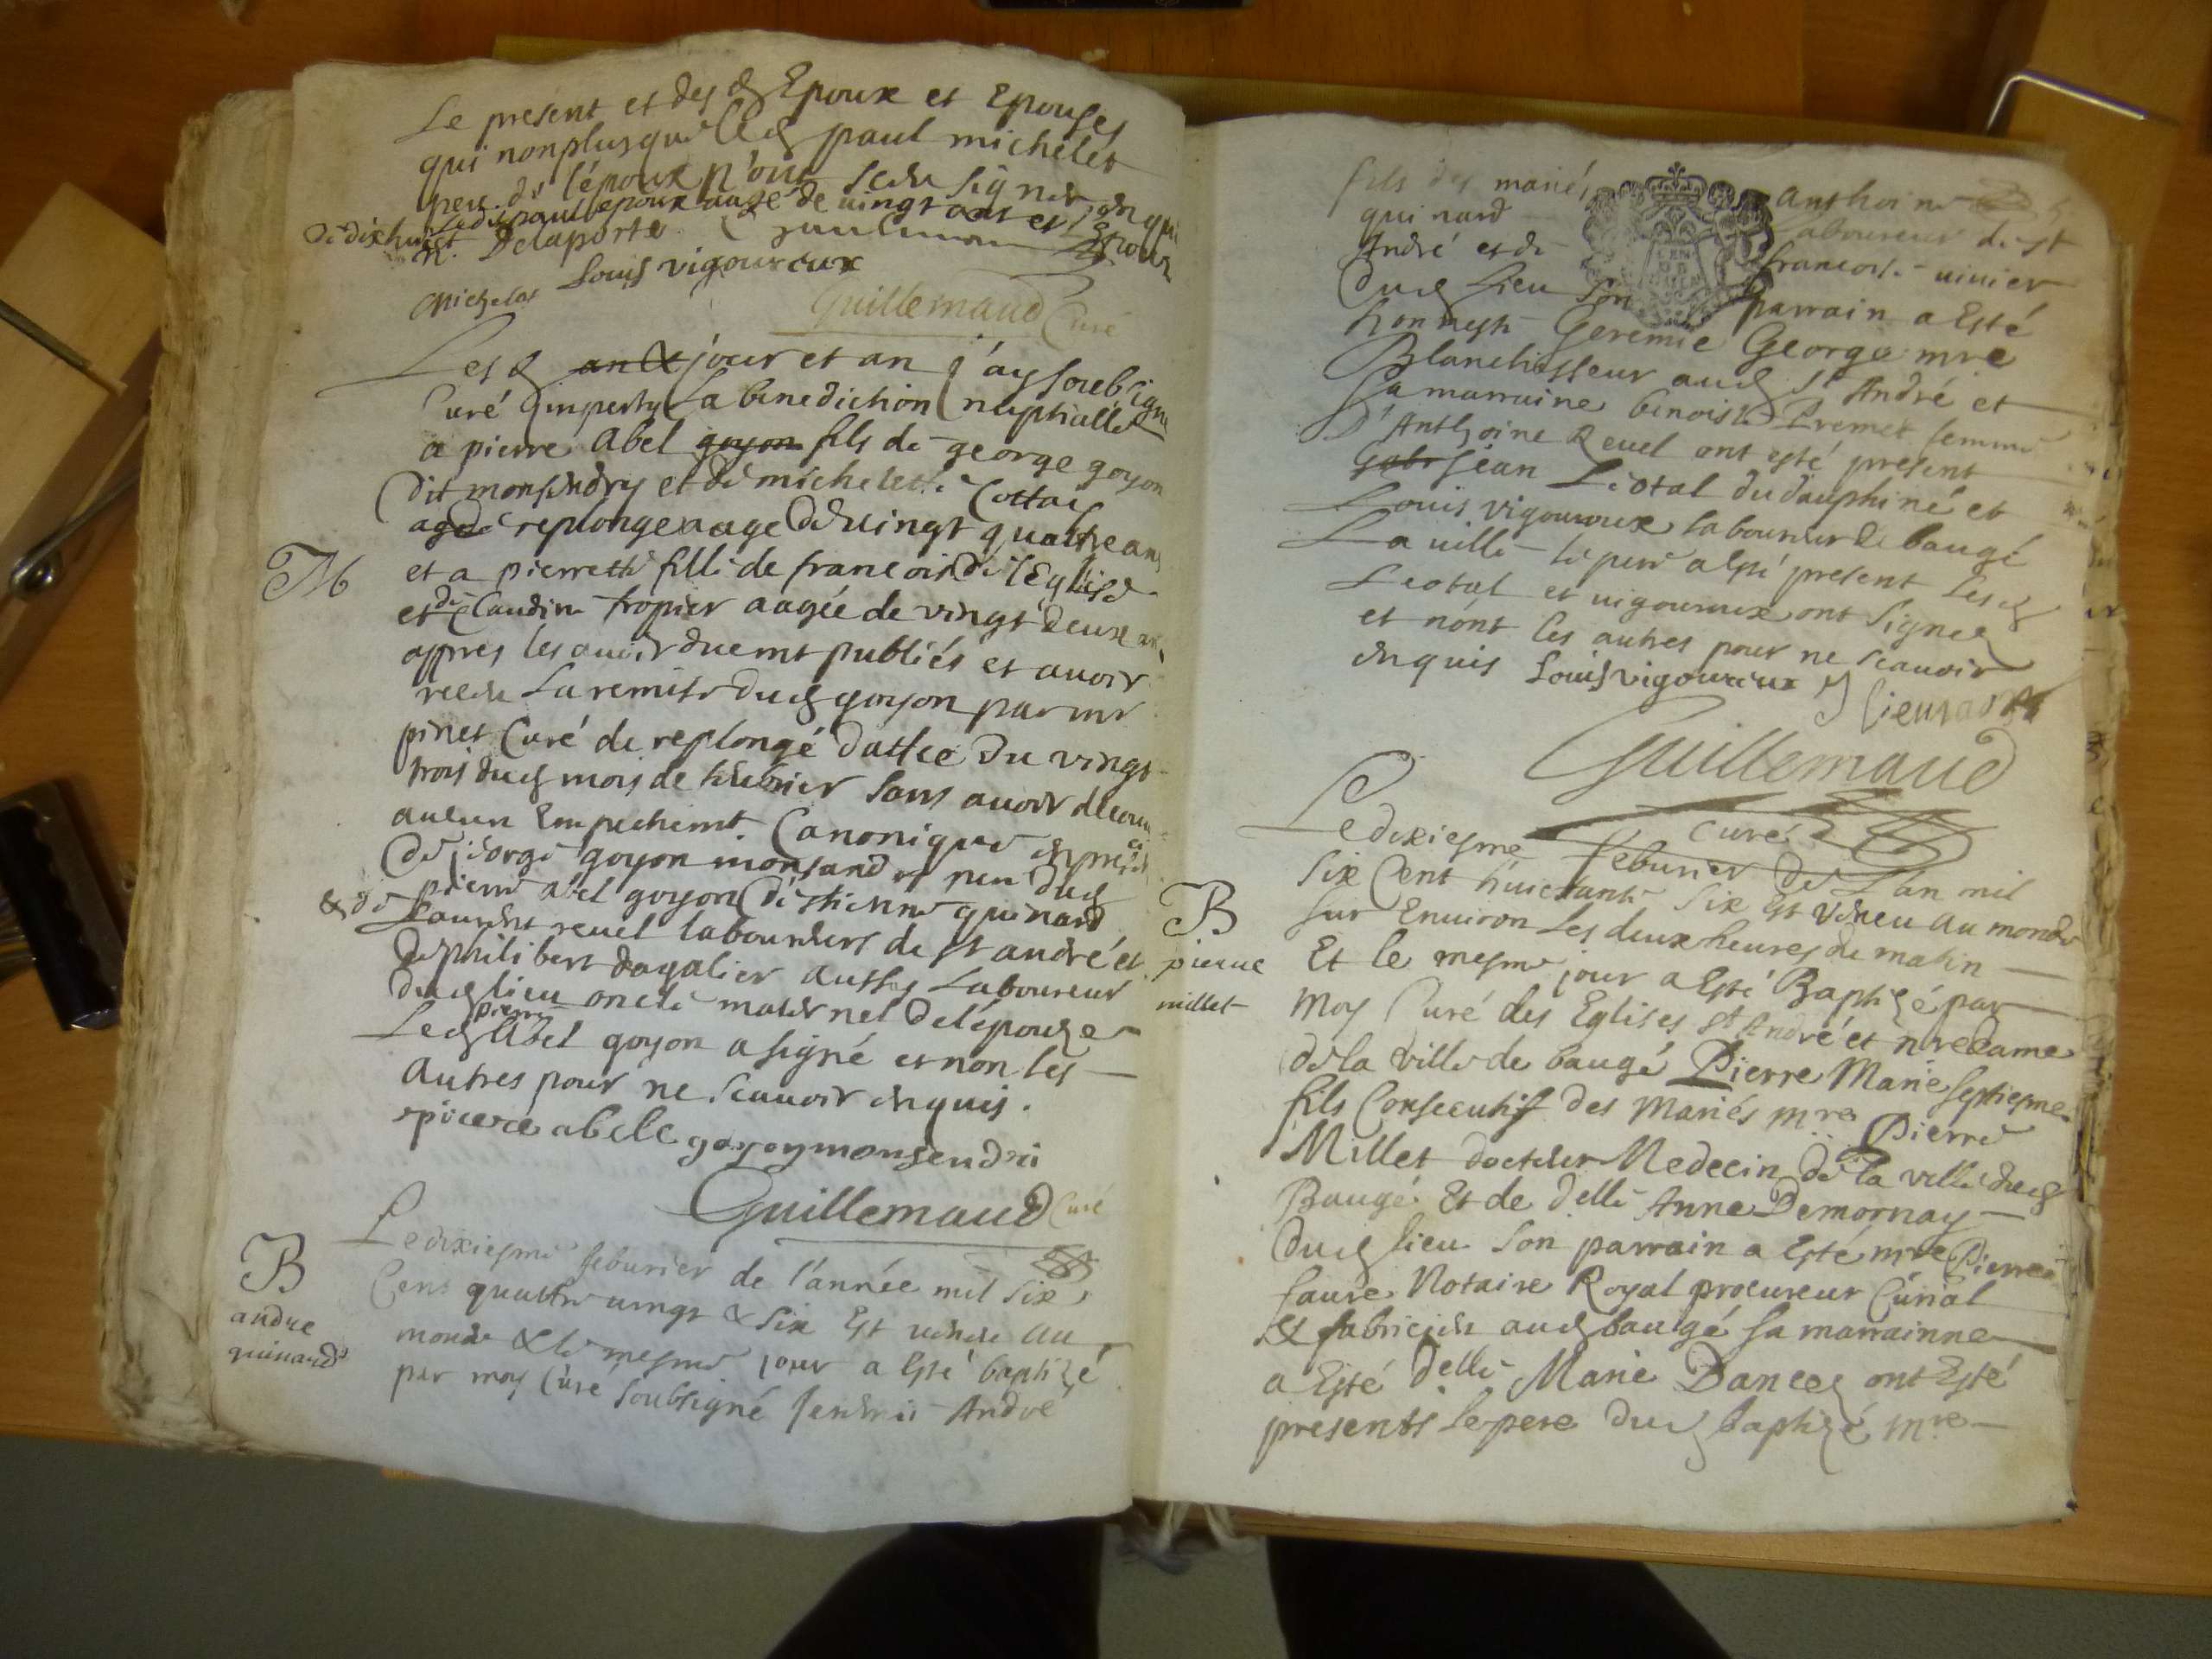 Le present et des d Epoux et Epouses
qui nonplusque led paul michelet
pere de l'époux n'ont sceu signer enquis
ledit paul epoux aagé de vingt ans et l'epouse
de dixhuict
Delaporte
Louis vigoureux
Michelet
Guillemaud Curé
Lesd an & jour et an j'ay soubsigné
Curé imparty La benediction nuptialle
a pierre Abel goyon fils de george goyon
dit monsendry et de michelette Cottar
agé de replonge aage de vingt quattre ans
M
et a pierrette fille de francois de l'Eglise
et de Claudine tropier aagée de vingt deux ans
appres les avoir duemt publiés et avoir
receu La remise dud goyon par mr
pinet Curé de replonge dattée du vingt
trois dud mois de febvrier sans avoir decouvert
aucun Empechemt. Canonique en pnce
de george goyon monsand et pere dud
pierre abel goyon d'estienne quinard
& de Laurent revel laboureurs de st andré et
de philibert dagalier aussy Laboureur
dud lieu oncle maternel de l'épouze
Led pierre Abel goyon a signé et non les
autres pour ne scavoir enquis.
piere abele goyon monsendri
Guillemaud Curé
B
andre
quinard
Le dixiesme feburier de l'année mil six
Cens quattre vingt & six Est venu au
monde & le mesme jour a Esté baptizé
par moy Curé soubsigné André
fils des mariés Anthoine
quinard Laboureur de st
André et de francoise vivier
dud Lieu Son parrain a Esté
honneste Geremie George mre
Blanchisseur aud St André et
Sa marraine benoiste Premet femme
d'Anthoine Revel ont esté present
Jean Liotal du dauphiné et
Louis vigoureux laboureur de baugé
La ville le pere a esté present Lesd
Liotal et vigoureux ont signé
et nónt les autres pour ne scavoir
enquis Louis vigoureux
Guillemaud
curé
B
pierre
millet
Le dixiesme feburier de L'an mil
six Cent huictante six Est veneu au monde
sur Environ Les deux heures de matin
Et le mesme jour a Esté Baptizé par
moy Curé des Eglises St André et nre dame
de la ville de baugé Pierre Marie septiesme
fils Consecutif des Mariés mre Pierre
Millet docteur Medecin de la ville dud
Baugé Et de delle Anne Demornay
dud lieu Son parrain a Esté mre Pierre
faure Notaire Royal procureur Curial
Et fabricien aud baugé sa marrainne
a Esté delle Marie Dances ont Esté
presents le pere dud baptizé mre